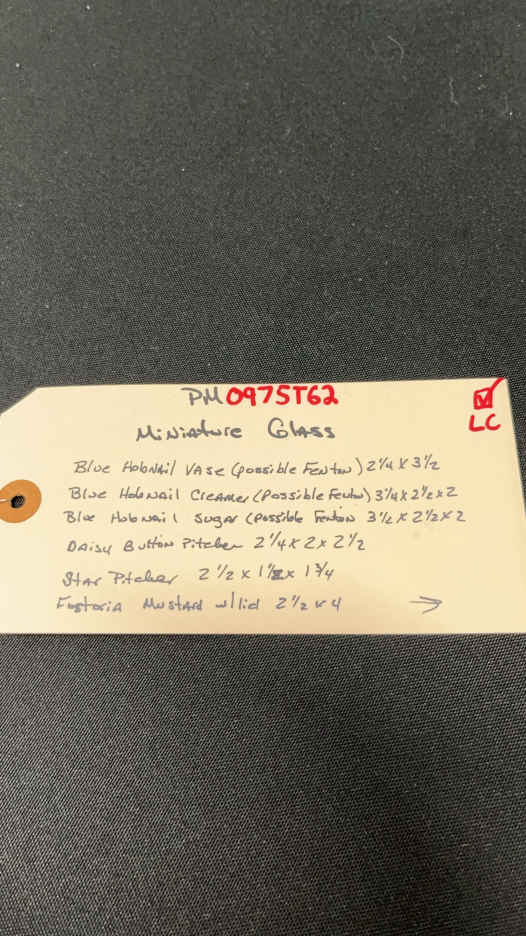 PM 0975T62
LC
Miniature Glass
Blue Hobnail Vase (possible Fenton) 2 1/4 x 3 1/2
Blue Hobnail Creamer (Possible Fenton) 3 1/4 x 2 1/2 x 2
Blue Hobnail Sugar (Possible Fenton 3 1/2 x 2 1/2 x 2
Daisy Button Pitcher 2 1/4 x 2 x 2 1/2
Star Pitcher 2 1/2 x 1 1/2 x 1 3/4
Fostoria Mustard w/lid 2 1/2 x 4 →